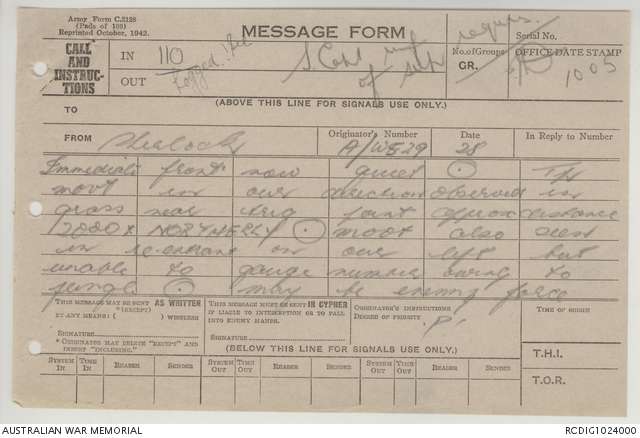 Army Form C.2128
(Pads of 100)
Reprinted October, 1942.
MESSAGE FORM
Serial No.
CALL
AND
INSTRUC-
TIONS
IN
110
OUT
No. of Groups
GR.
OFFICE DATE STAMP
1005
(ABOVE THIS LINE FOR SIGNALS USE ONLY.)
TO
FROM
Originator's Number
Date
In Reply to Number
A/W529
28
Immediate front now quiet . The
movt in our direction observed in
grass near trig point approx distance
2000 x NORTHERLY . movt also seen
in re-entrant on our left but
unable to gauge number owing to
jungle . may be enemy force
THIS MESSAGE MAY BE SENT AS WRITTEN
* (EXCEPT)
BY ANY MEANS ( ) WIRELESS
SIGNATURE
* ORIGINATOR MAY DELETE "EXCEPT" AND
INSERT "INCLUDING."
THIS MESSAGE MUST BE SENT IN CYPHER
IF LIABLE TO INTERCEPTION OR TO FALL
INTO ENEMY HANDS.
SIGNATURE
ORIGINATOR'S INSTRUCTIONS
DEGREE OF PRIORITY
'P'
TIME OF ORIGIN
(BELOW THIS LINE FOR SIGNALS USE ONLY.)
SYSTEM IN
TIME IN
READER
SENDER
SYSTEM OUT
TIME OUT
READER
SENDER
SYSTEM OUT
TIME OUT
READER
SENDER
T.H.I.
T.O.R.
AUSTRALIAN WAR MEMORIAL
RCDIG1024000